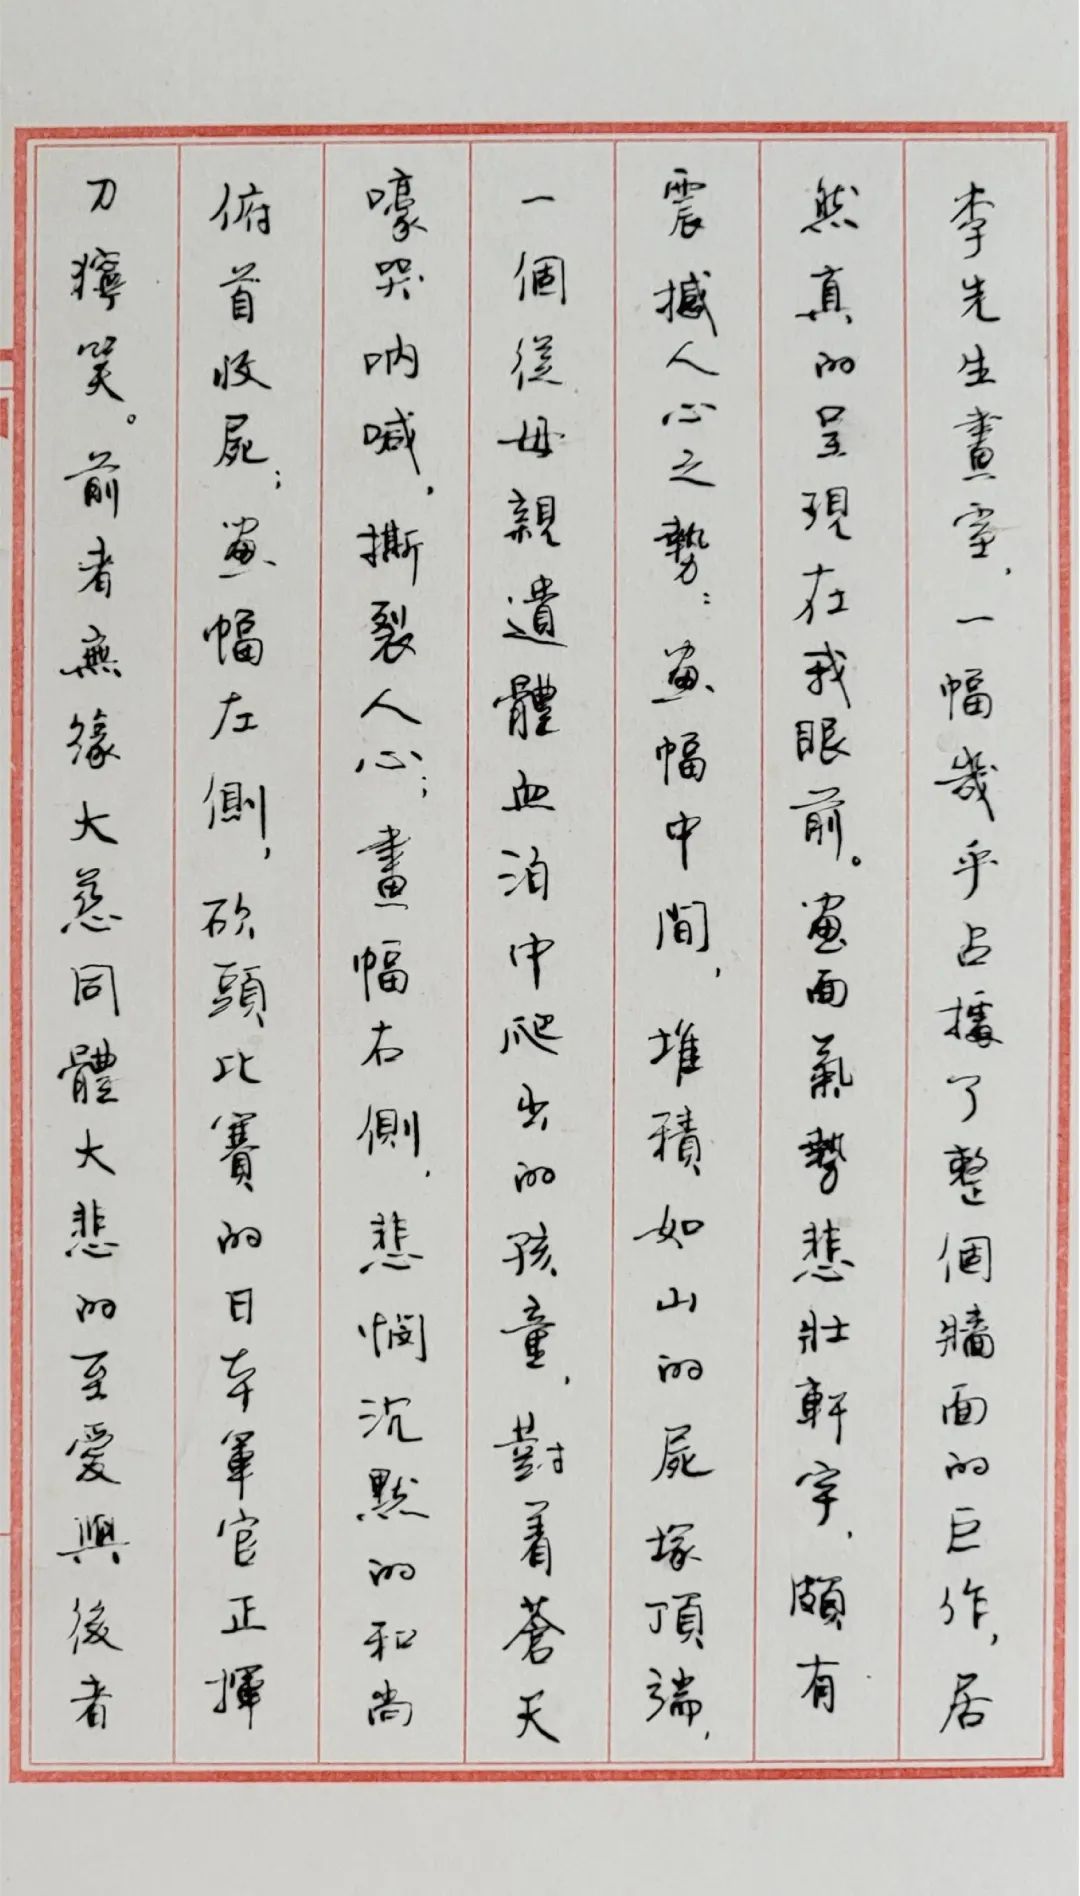 李先生畫室，一幅幾乎占據了整個牆面的巨作，居
然真的呈現在我眼前。畫面氣勢悲壯軒宇，頗有
震撼人心之勢：畫幅中間，堆積如山的屍塚頂端，
一個從母親遺體血泊中爬出的孩童，對着蒼天
嚎哭吶喊，撕裂人心；畫幅右側，悲憫沉默的和尚
俯首收屍；畫幅左側，砍頭比賽的日本軍官正揮
刀獰笑。前者無緣大慈同體大悲的至愛與後者